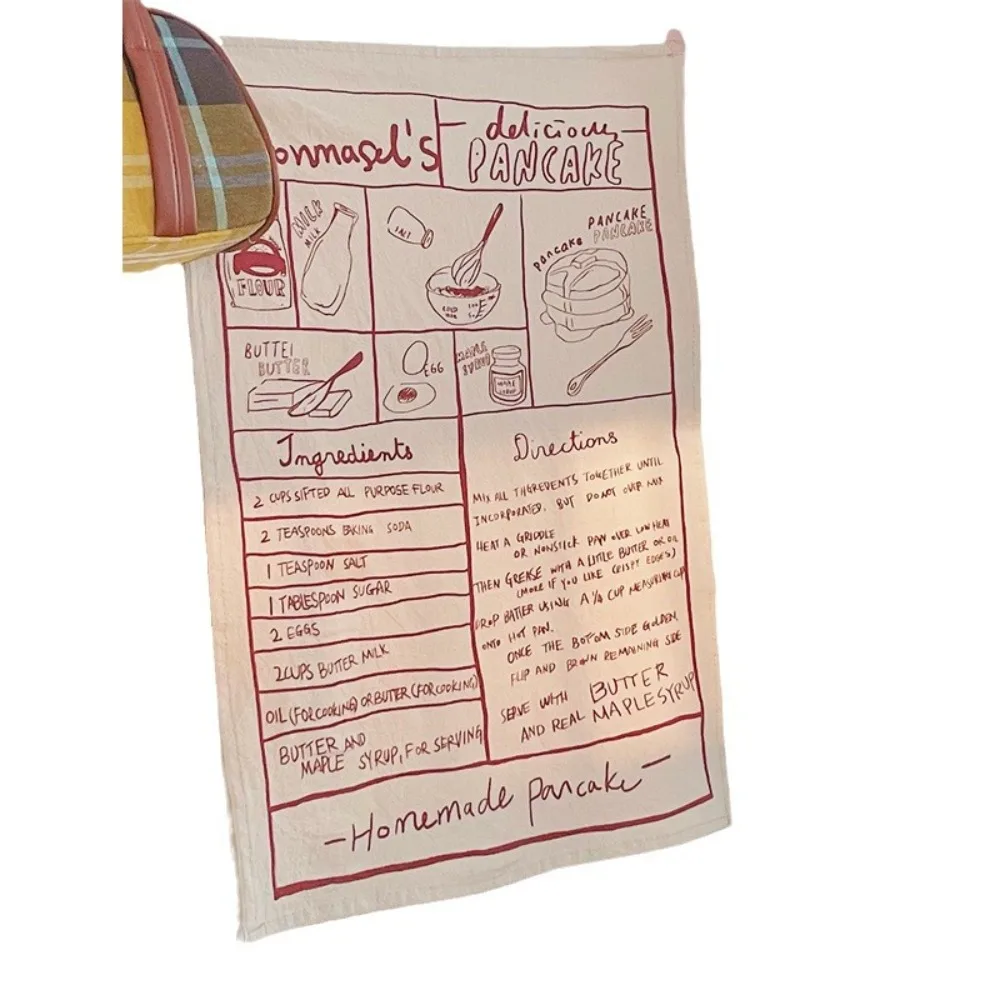 onmasel's
delicious
PANCAKE
MILK
MILK
SALT
PANCAKE
PANCAKE
pancake
FLOUR
BUTTEI
BUTTER
EGG
MAPLE
SYRUP
MAPLE
SYRUP
Ingredients
2 CUPS SIFTED ALL PURPOSE FLOUR
2 TEASPOONS BAKING SODA
1 TEASPOON SALT
1 TABLESPOON SUGAR
2 EGGS
2 CUPS BUTTER MILK
OIL (FOR COOKING) OR BUTTER (FOR COOKING)
BUTTER AND
MAPLE SYRUP, FOR SERVING
Directions
MIX ALL THGREDENTS TOGETHER UNTIL
INCORPORATED. BUT DO NOT OVER MIX
HEAT A GRIDDLE
OR NONSTICK PAN OVER LOW HEAT
THEN GREASE WITH A LITTLE BUTTER OR OIL
(MORE IF YOU LIKE CRISPY EDGES)
DROP BATTER USING A 1/4 CUP MEASURING CUP
ONTO HOT PAN.
ONCE THE BOTTOM SIDE GOLDEN,
FLIP AND BROWN REMAINING SIDE
SERVE WITH BUTTER
AND REAL MAPLE SYRUP
-Homemade pancake-